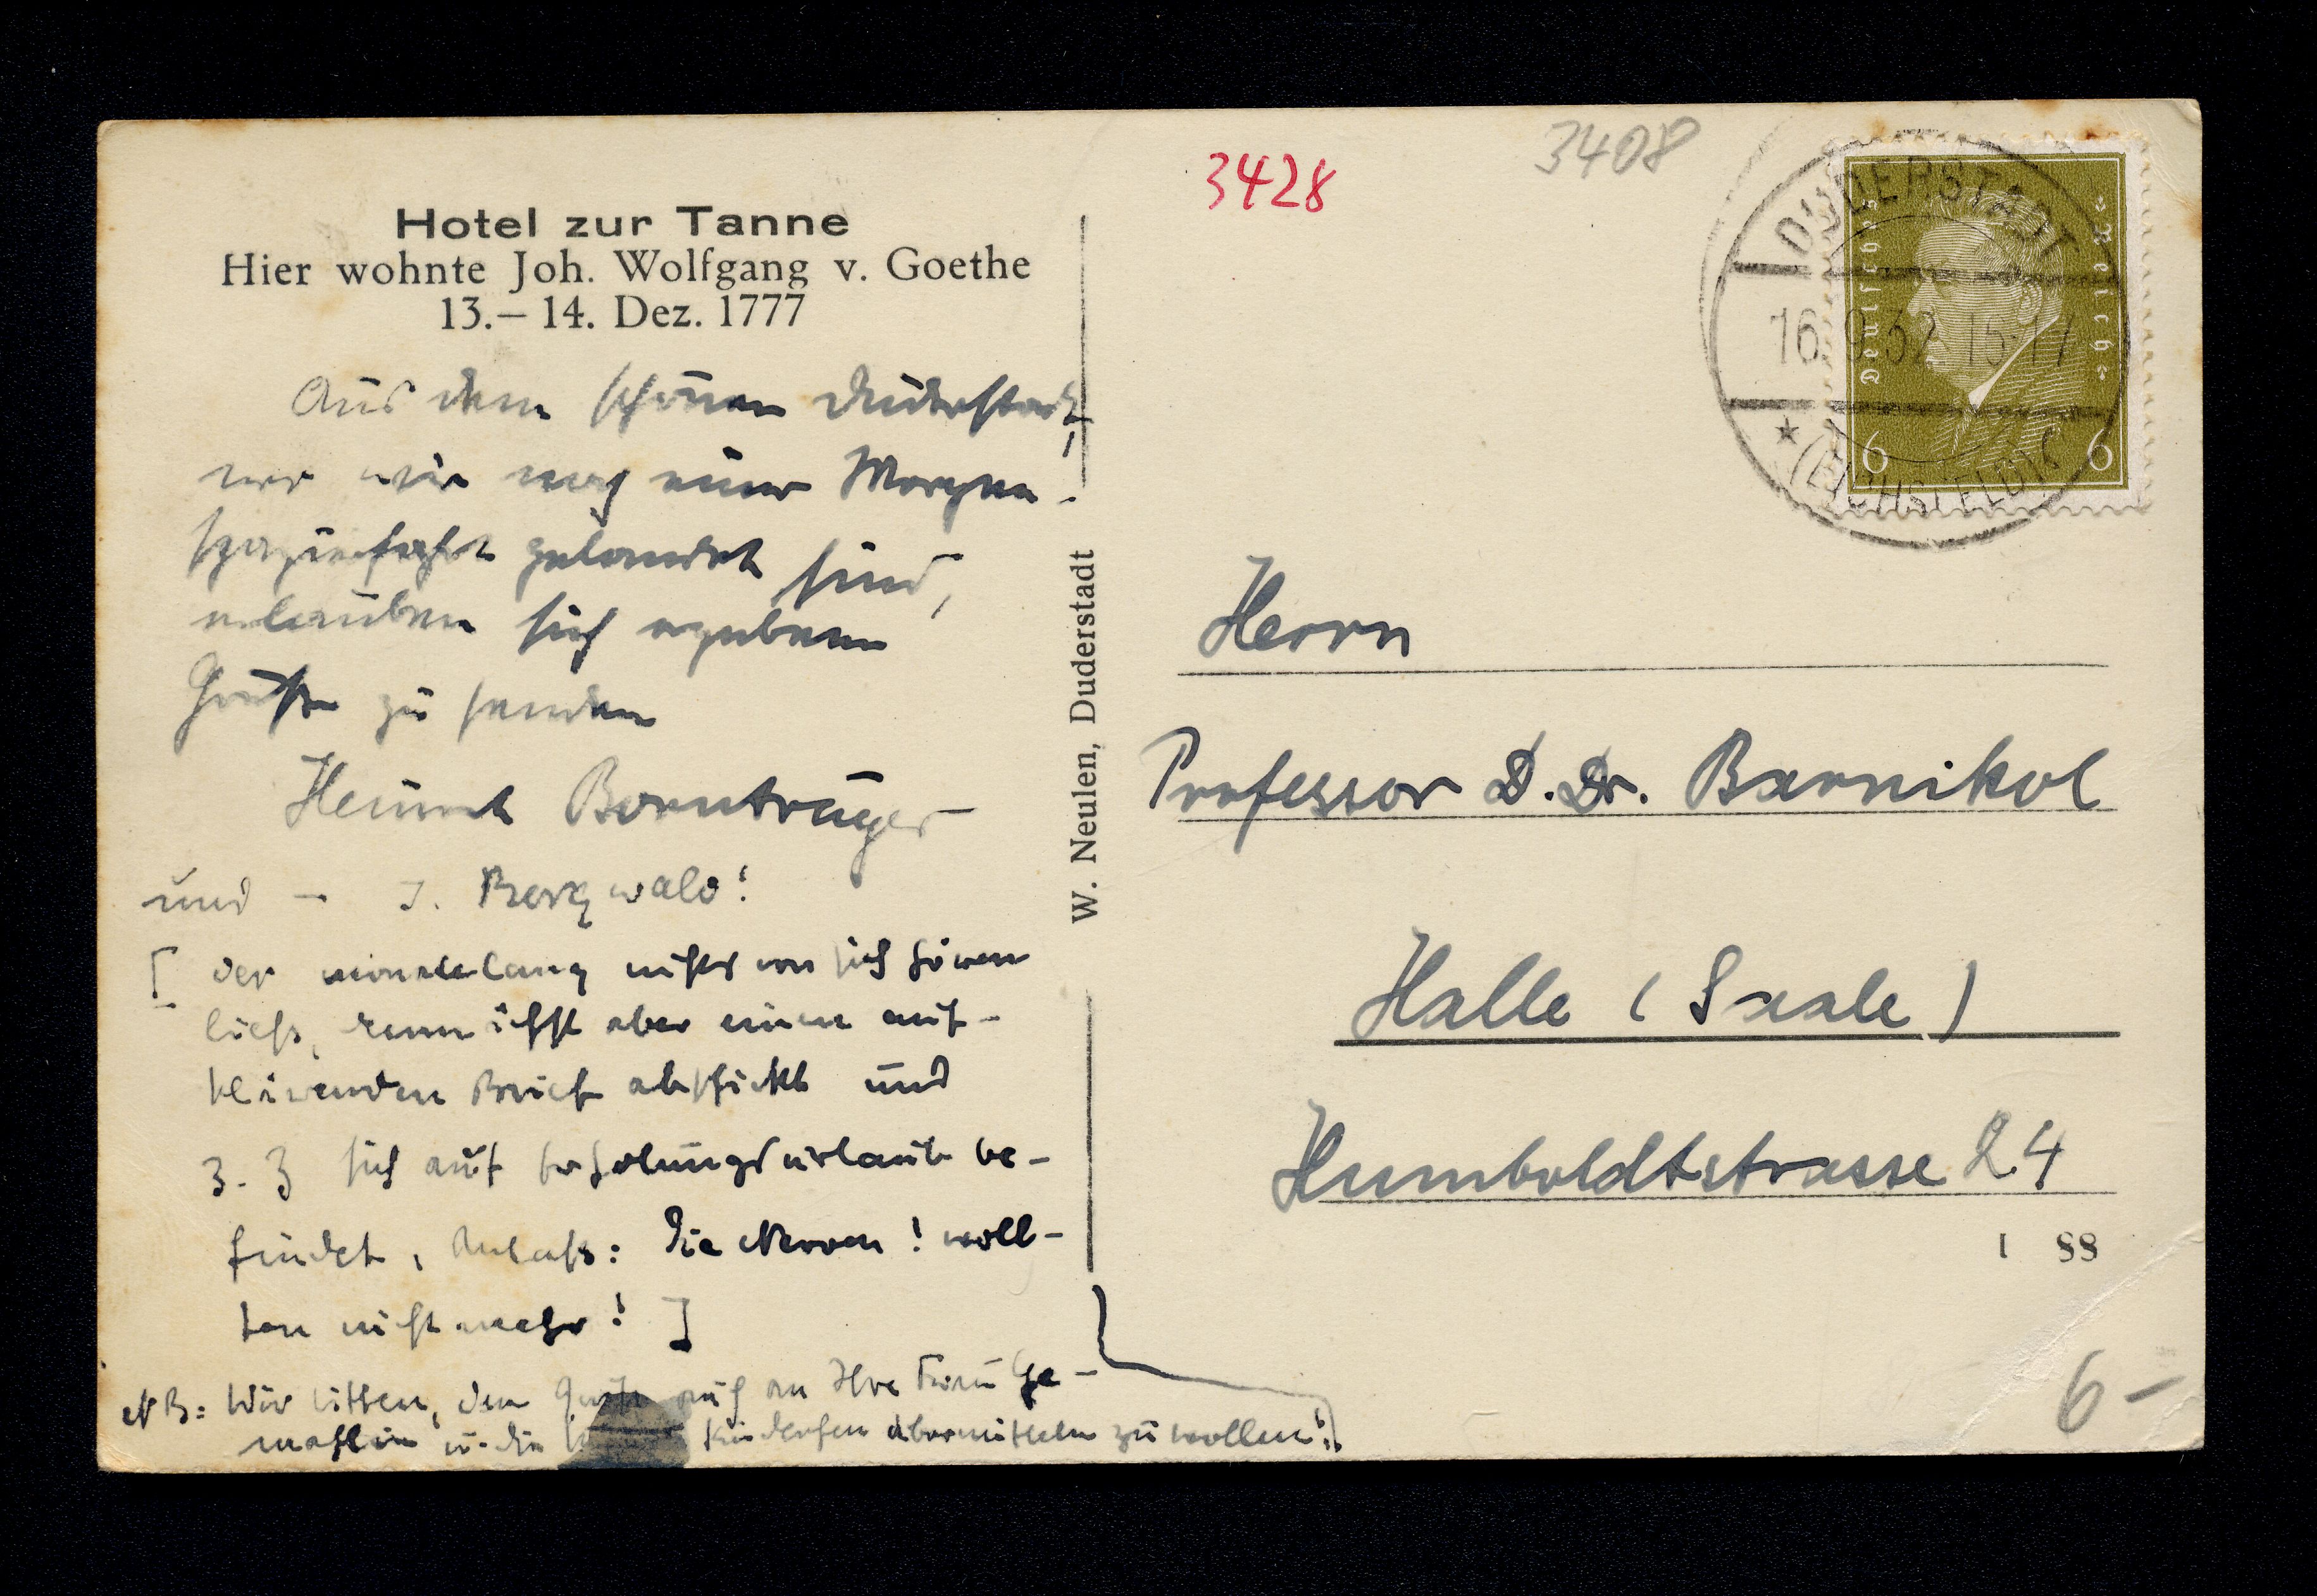 Hotel zur Tanne
Hier wohnte Joh. Wolfgang v. Goethe
13.– 14. Dez. 1777
Aus dem schönen Duderstadt,
wo wir nach einer Morgen-
spazierfahrt gelandet sind,
erlauben sich ergebene
Grüße zu senden
Bornträger
und – J. Bergwald!
[ der monatelang nichts von sich hören
ließ, demnächst aber einen auf-
klärenden Brief abschickt und
z. Z sich auf Erholungsurlaub be-
findet, Anlaß: Die Nerven! woll-
ten nicht mehr! ]
NB: Wir bitten, den Gruß auch an Ihre Frau Ge-
mahlin u. die Kinderchen übermitteln zu wollen!
W. Neulen, Duderstadt
3428
3408
DUDERSTADT
16. 9. 32 15-17
* (EICHSFELD)
Deutsches Reich
6 6
Herrn
Professor D. Dr. Barnikol
Halle (Saale)
Humboldtstrasse 24
I 88
6-